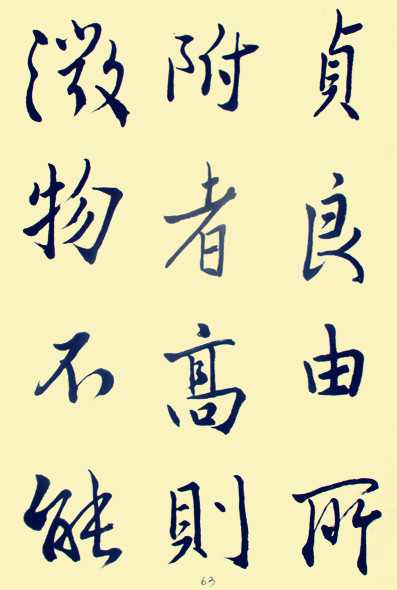 貞良由所
附者高則
微物不能
63